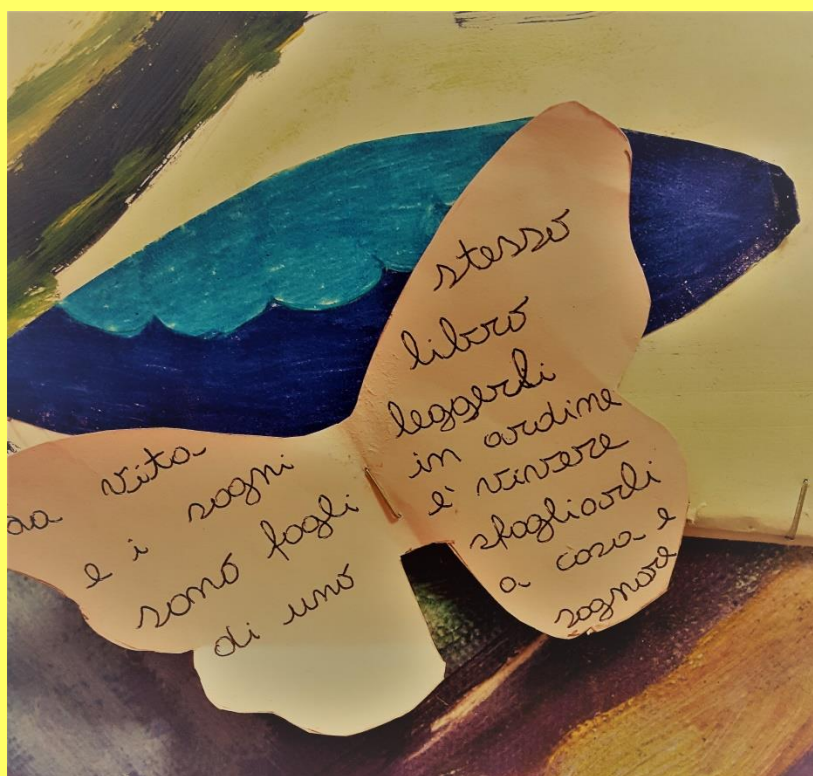 La vita
e i sogni
sono fogli
di uno
stesso
libro
leggerli
in ordine
e' vivere
sfogliarli
a caso e
sognare